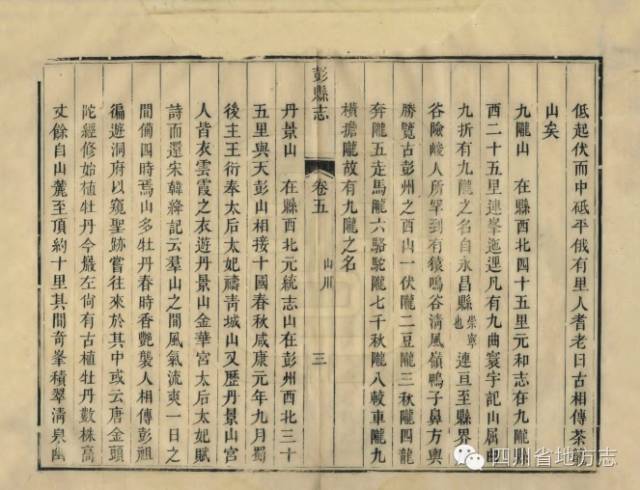 低起伏而中砥平俄有里人耆老曰古相傳茶
山矣
九隴山 在縣西北四十五里元和志在九隴縣
西二十五里連峯迤邐凡有九曲寰宇記山屬曲
九折有九隴之名自永昌縣崇寧也連亘至縣界
谷險峻人所罕到有猿鳴谷清風嶺鴨子鼻方輿
勝覽古彭州之西山一伏隴二豆隴三秋隴四龍
奔隴五走馬隴六駱駝隴七千秋隴八較車隴九
橫擔隴故有九隴之名
彭縣志 卷五 山川 三
丹景山 在縣西北元統志山在彭州西北三十
五里與天彭山相接十國春秋咸康元年九月蜀
後主王衍奉太后太妃禱青城山又歷丹景山宮
人皆衣雲霞之衣遊丹景山金華宮太后太妃賦
詩而還宋韓絳記云羣山之間風氣流爽一日之
間備四時焉山多牡丹春時香艷襲人相傳彭祖
徧遊洞府以窺聖跡嘗往來於其中或云唐金頭
陀經修始植牡丹今最左尚有古植牡丹數株高
丈餘自山麓至頂約十里其間奇峯積翠清泉幽
四川省地方志